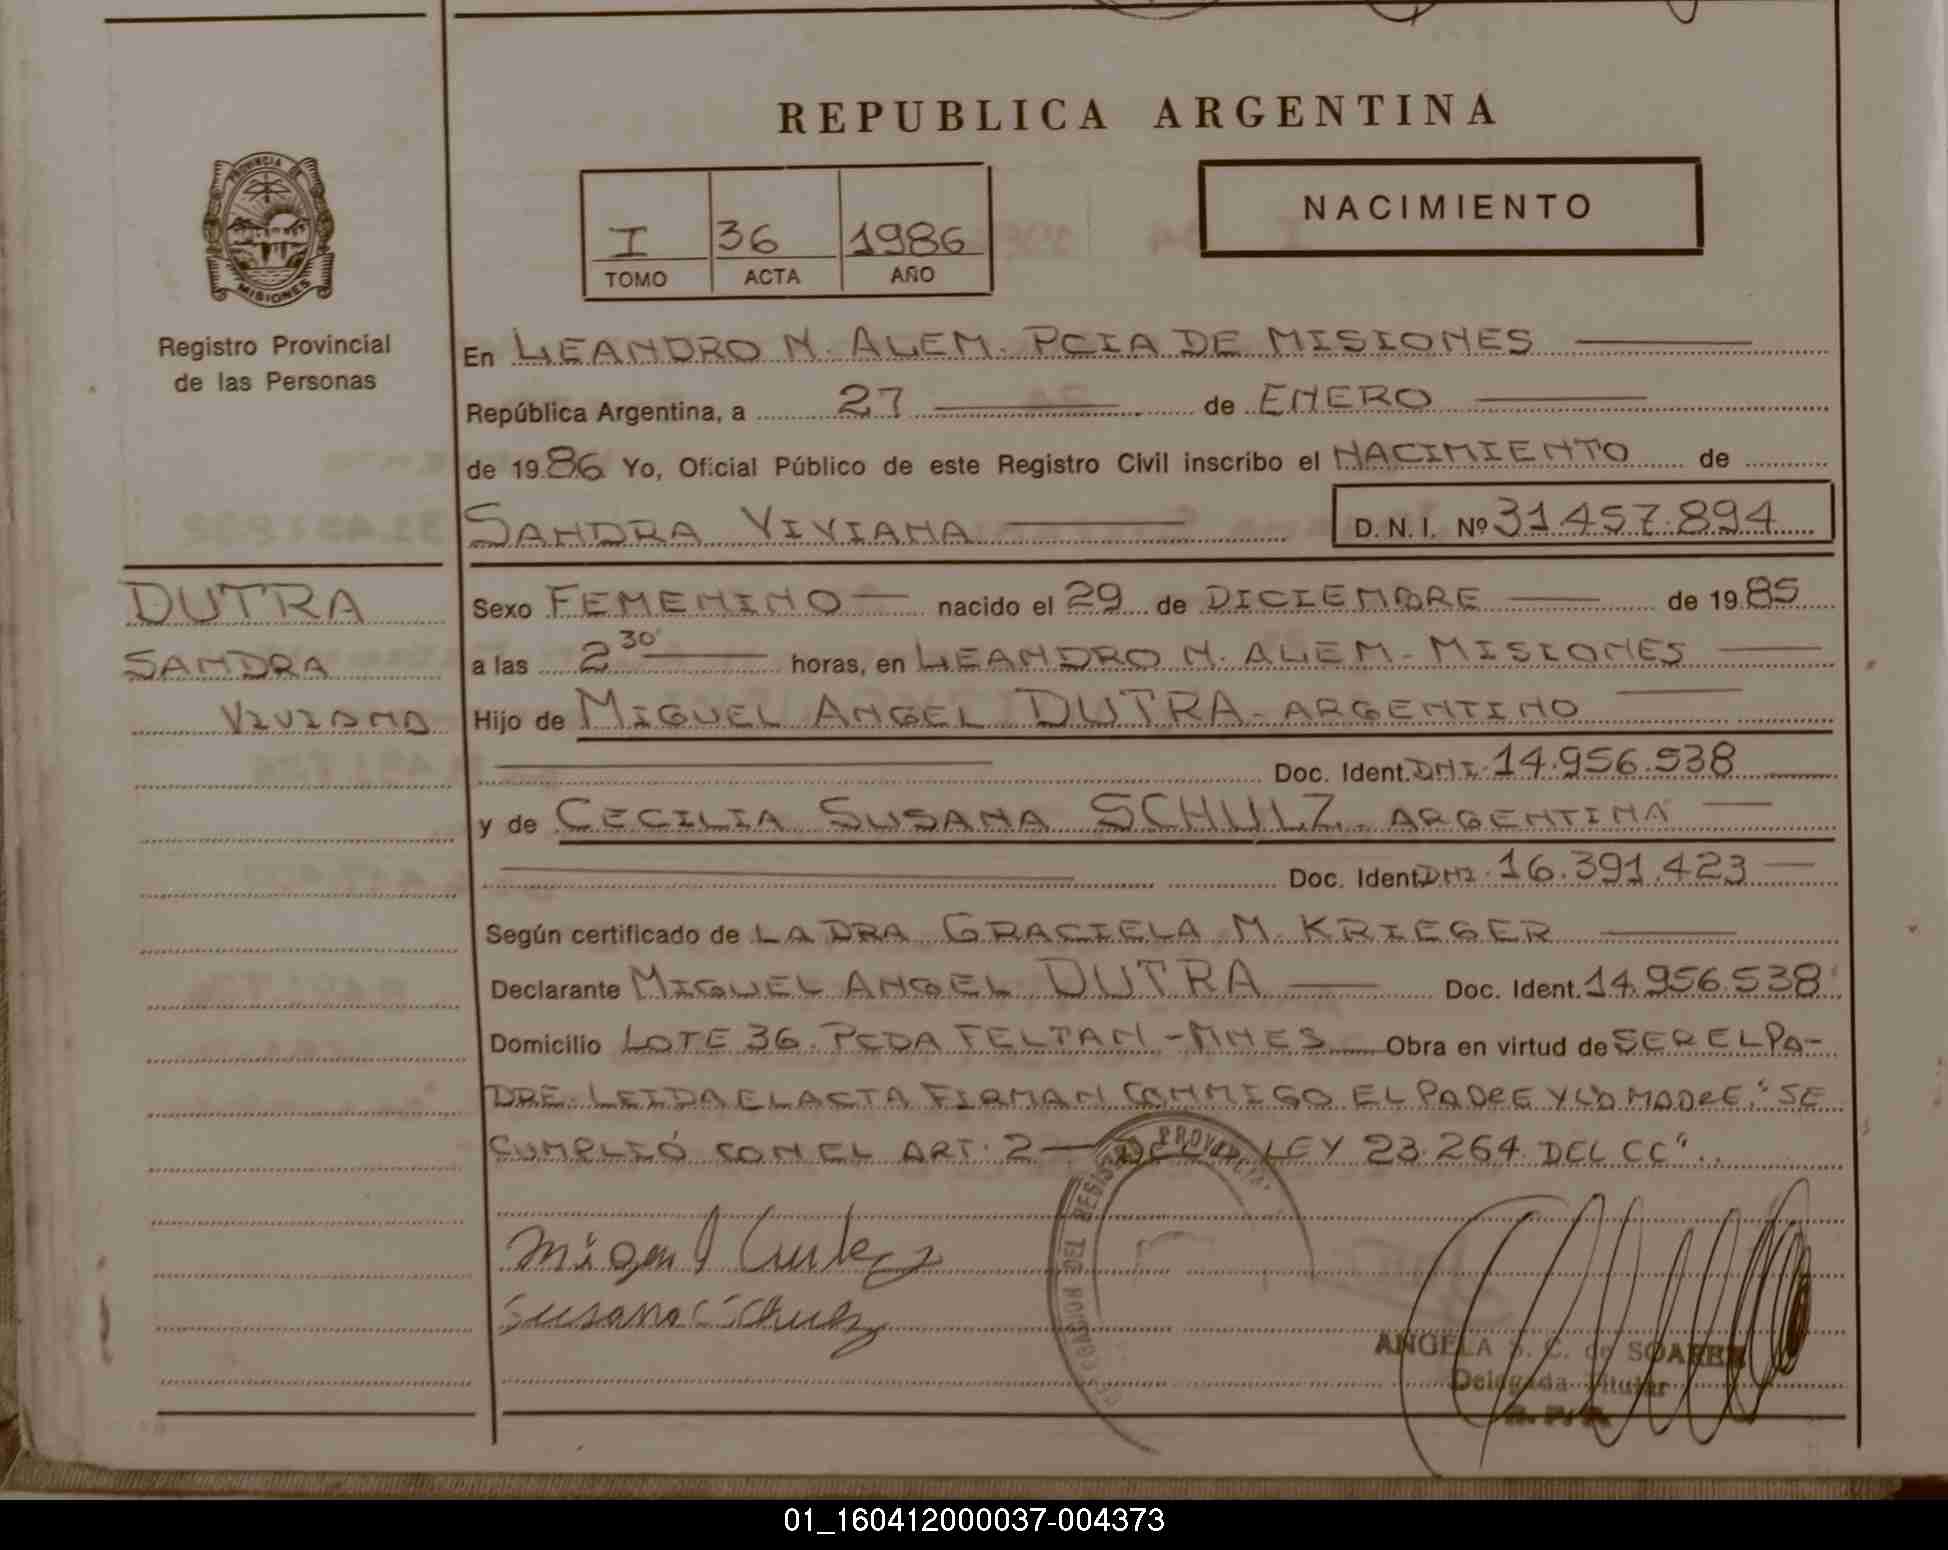 REPUBLICA ARGENTINA
PROVINCIA DE
MISIONES
Registro Provincial
de las Personas
I 36 1986
TOMO ACTA AÑO
NACIMIENTO
En LEANDRO N. ALEM. PCIA DE MISIONES
República Argentina, a 27 de ENERO
de 1986 Yo, Oficial Público de este Registro Civil inscribo el NACIMIENTO de
SANDRA VIVIANA D. N. I. Nº 31.457.894
DUTRA
SANDRA
VIVIANA
Sexo FEMENINO nacido el 29 de DICIEMBRE de 1985
a las 2 30' horas, en LEANDRO N. ALEM - MISIONES
Hijo de MIGUEL ANGEL DUTRA - ARGENTINO
Doc. Ident. DNI. 14.956.538
y de CECILIA SUSANA SCHULZ. ARGENTINA
Doc. Ident. DNI. 16.391.423
Según certificado de LA DRA GRACIELA M. KRIEGER
Declarante MIGUEL ANGEL DUTRA Doc. Ident. 14.956.538
Domicilio LOTE 36. PCDA FELTAN - MNES Obra en virtud de SER EL PA-
DRE. LEIDA EL ACTA FIRMAN CONMIGO EL PADRE Y LA MADRE. "SE
CUMPLIÓ CON EL ART. 2 - DE LA LEY 23.264 DEL CC"..
Miguel
Susana Schulz
DEL REGIST PROVINCIAL
ANGELA S. C. de SOAREZ
Delegada Titular
01_160412000037-004373